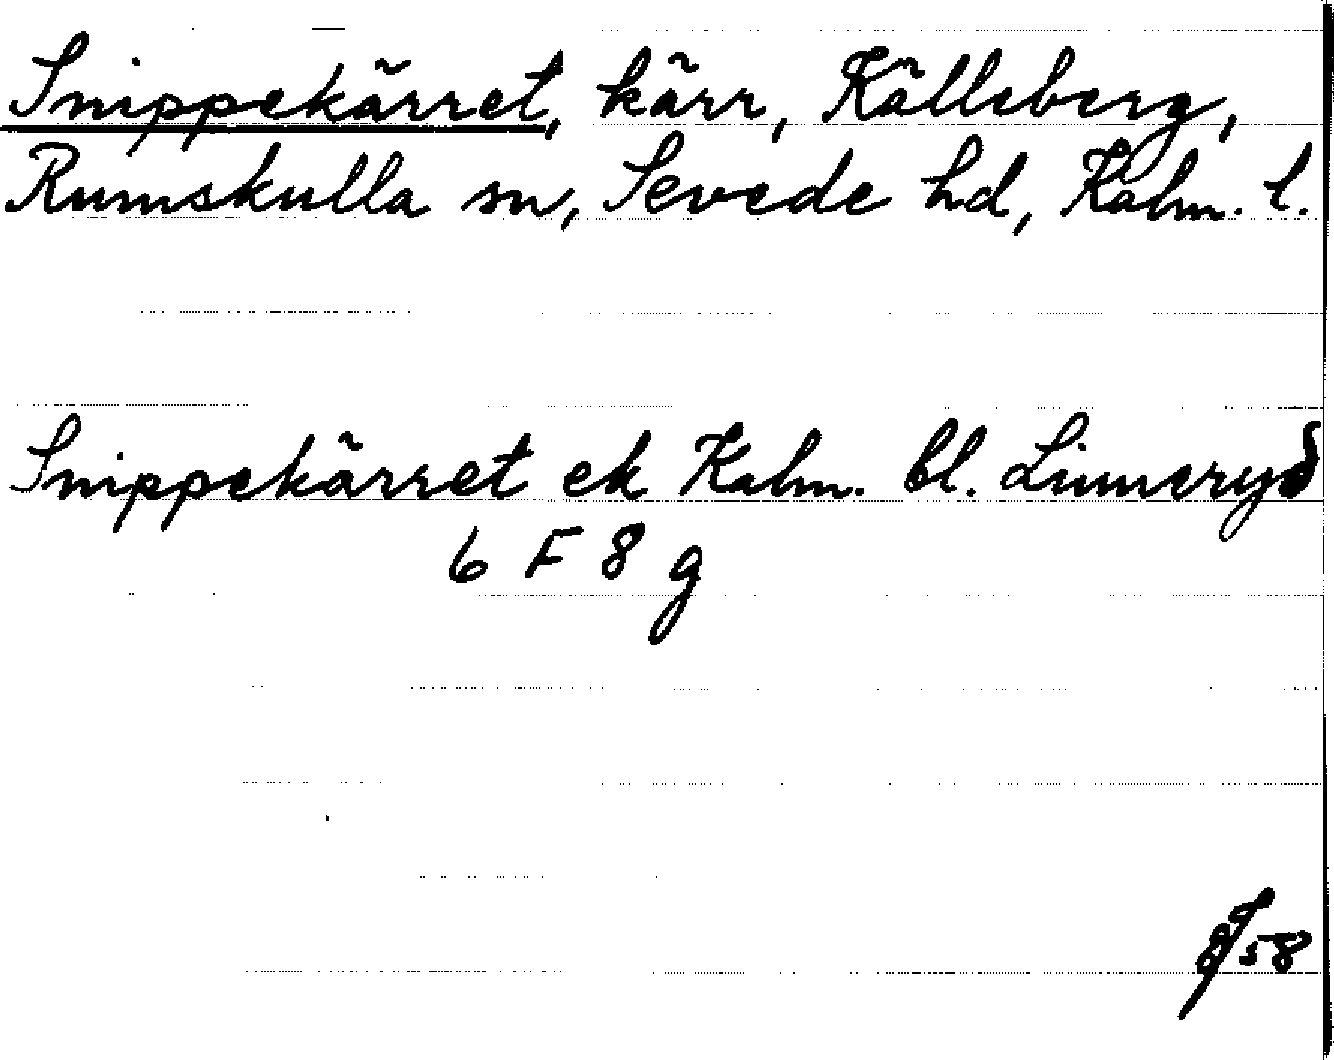 Snippekärret, kärr, Källeberg,
Rumskulla sn, Sevede hd, Kalm. l.
Snippekärret ek Kalm. bl. Linneryd
6 F 8 g
58